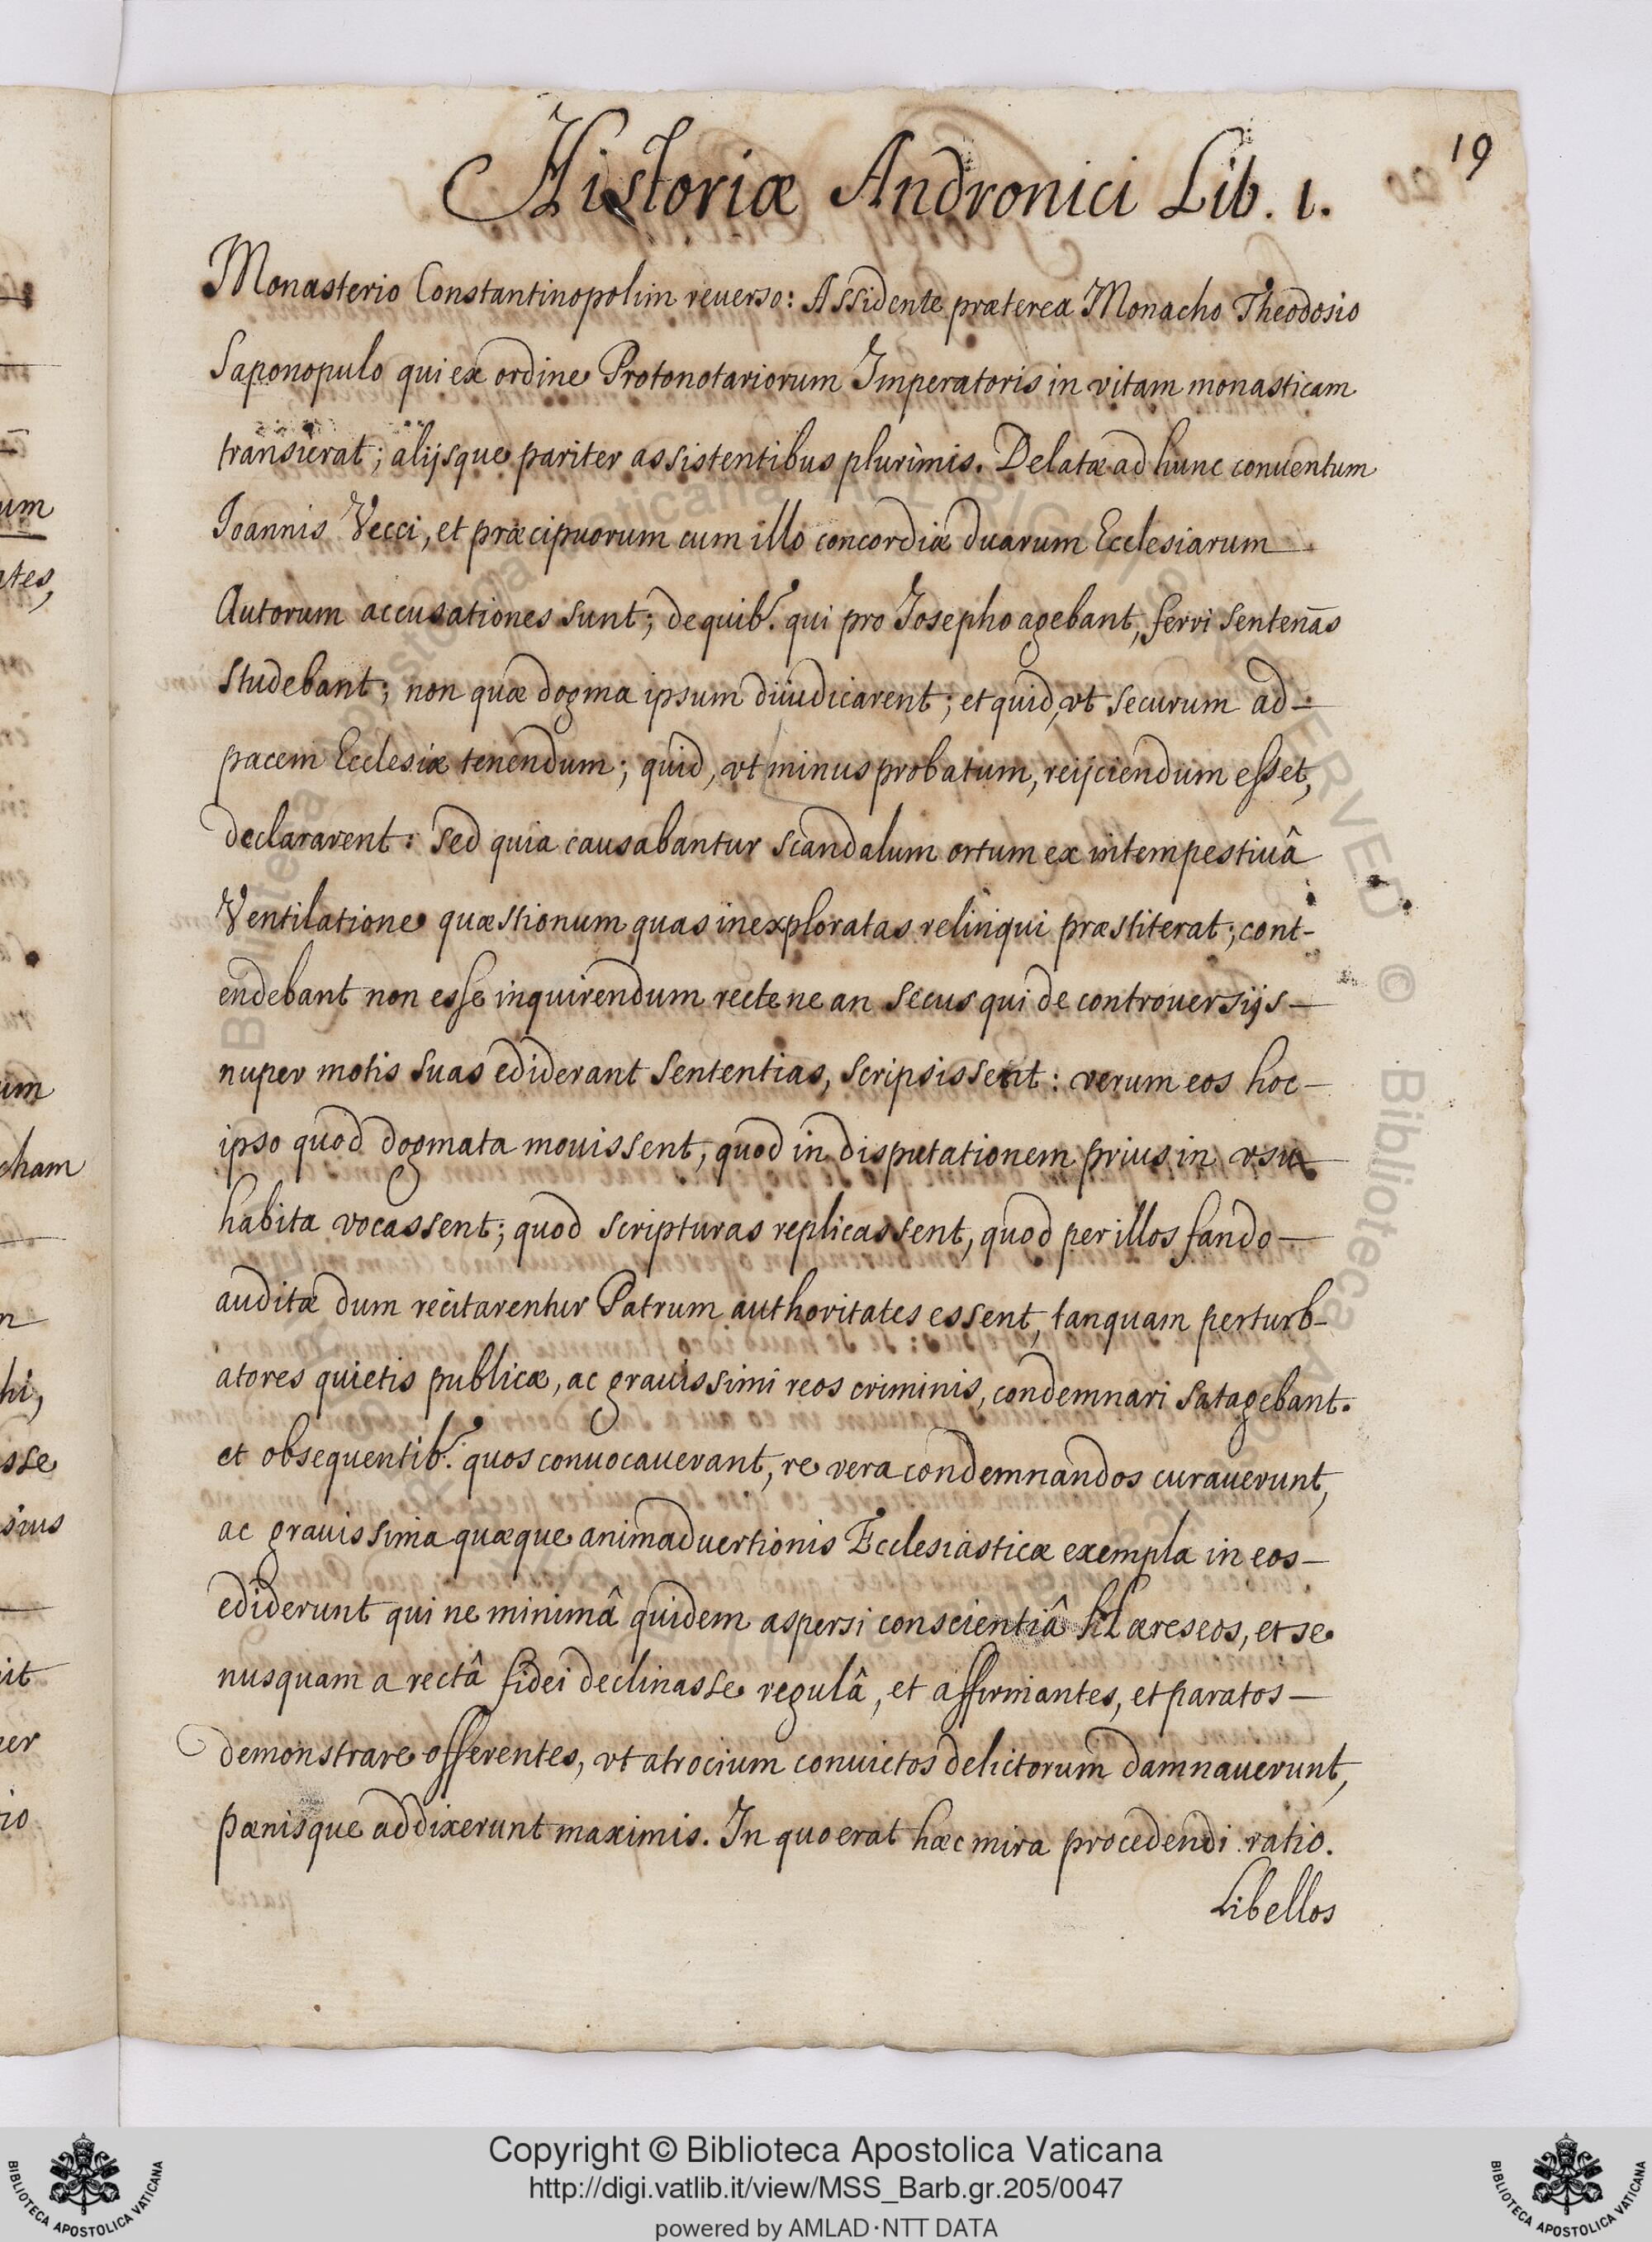 19
Historiæ Andronici Lib. 1.
Monasterio Constantinopolim reuerso: Assidente præterea Monacho Theodosio
Saponopulo qui ex ordine Protonotariorum Imperatoris in vitam monasticam
transierat; alijsque pariter assistentibus plurimis. Delatæ ad hunc conuentum
Ioannis Vecci, et præcipuorum cum illo concordiæ duarum Ecclesiarum
Autorum accusationes sunt; de quib. qui pro Iosepho agebant, ferri sentenas
studebant; non quæ dogma ipsum diiudicarent; et quid, vt securum ad-
pacem Ecclesiæ tenendum; quid, vt minus probatum, reijciendum esset,
declararent: sed quia causabantur scandalum ortum ex intempestiuâ
Ventilatione quæstionum quas inexploratas relinqui præstiterat; cont-
endebant non esse inquirendum recte ne an secus qui de controuersijs-
nuper motis suas ediderant sententias, scripsissent: verum eos hoc-
ipso quod dogmata mouissent, quod in disputationem prius in vsu
habita vocassent; quod scripturas replicassent, quod per illos fando-
auditæ dum recitarentur Patrum authoritates essent, tanquam perturb-
atores quietis publicæ, ac grauissimi reos criminis, condemnari satagebant.
et obsequentib. quos conuocauerant, re vera condemnandos curauerunt,
ac grauissima quæque animaduertionis Ecclesiasticæ exempla in eos-
ediderunt qui ne minimâ quidem aspersi conscientiâ Hæreseos, et se
nusquam a rectâ fidei declinasse regulâ, et affirmantes, et paratos-
demonstrare offerentes, vt atrocium conuictos delictorum damnauerunt,
pænisque addixerunt maximis. In quo erat hæc mira procedendi ratio.
Libellos
Copyright © Biblioteca Apostolica Vaticana
http://digi.vatlib.it/view/MSS_Barb.gr.205/0047
powered by AMLAD·NTT DATA
BIBLIOTECA APOSTOLICA VATICANA
BIBLIOTECA APOSTOLICA VATICANA